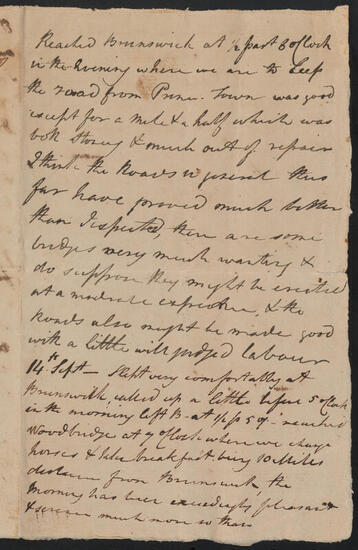 Reached Brunswick at 1/2 past 8 oClock
in the Evening where we are to Sleep
the road from Prince Town was good
except for a mile & a half which was
both Stoney & much out of repair
I think the Roads in general thus
far have proved much better
than I expected, there are some
bridges very much wanting &
do suppose they might be erected
at a moderate expence, & the
Roads also might be made good
with a little well judged labour
14th Sept— Slept very comfortably at
Brunswick, called up a little before 5 oClock
in the morning left B- at 1/2 p 5 o'- reached
Woodbridge at 7 oClock where we change
horses & take breakfast being 10 Miles
distance from Brunswick, the
Morning has been exceedingly pleasant
& serene much more so than